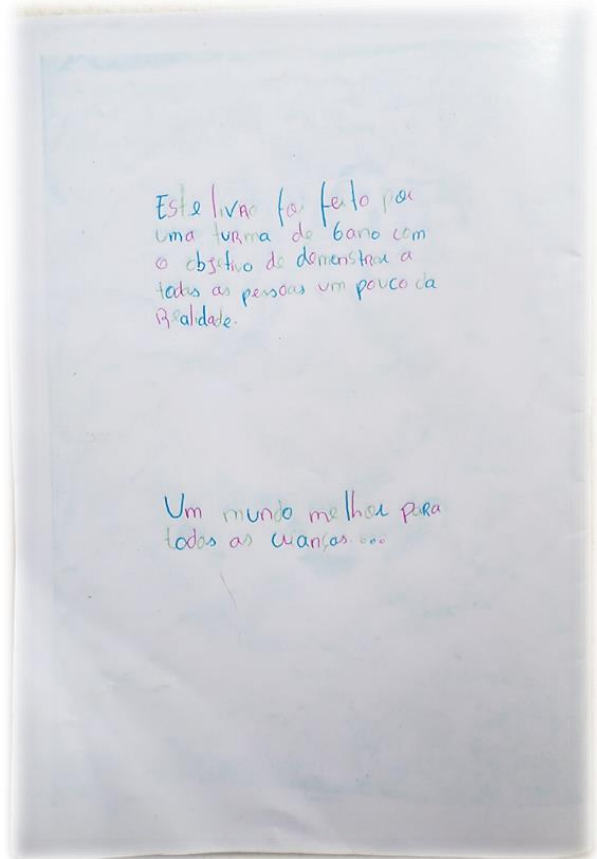 Este livro foi feito por
uma turma do 6ano com
o objetivo de demonstrar a
todas as pessoas um pouco da
Realidade.
Um mundo melhor para
todas as crianças...